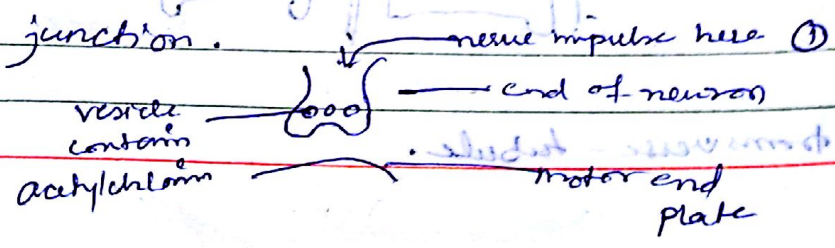 junction.
nerve impulse here ①
end of neuron
vesicle
contain
acetylcholin
motor end
plate